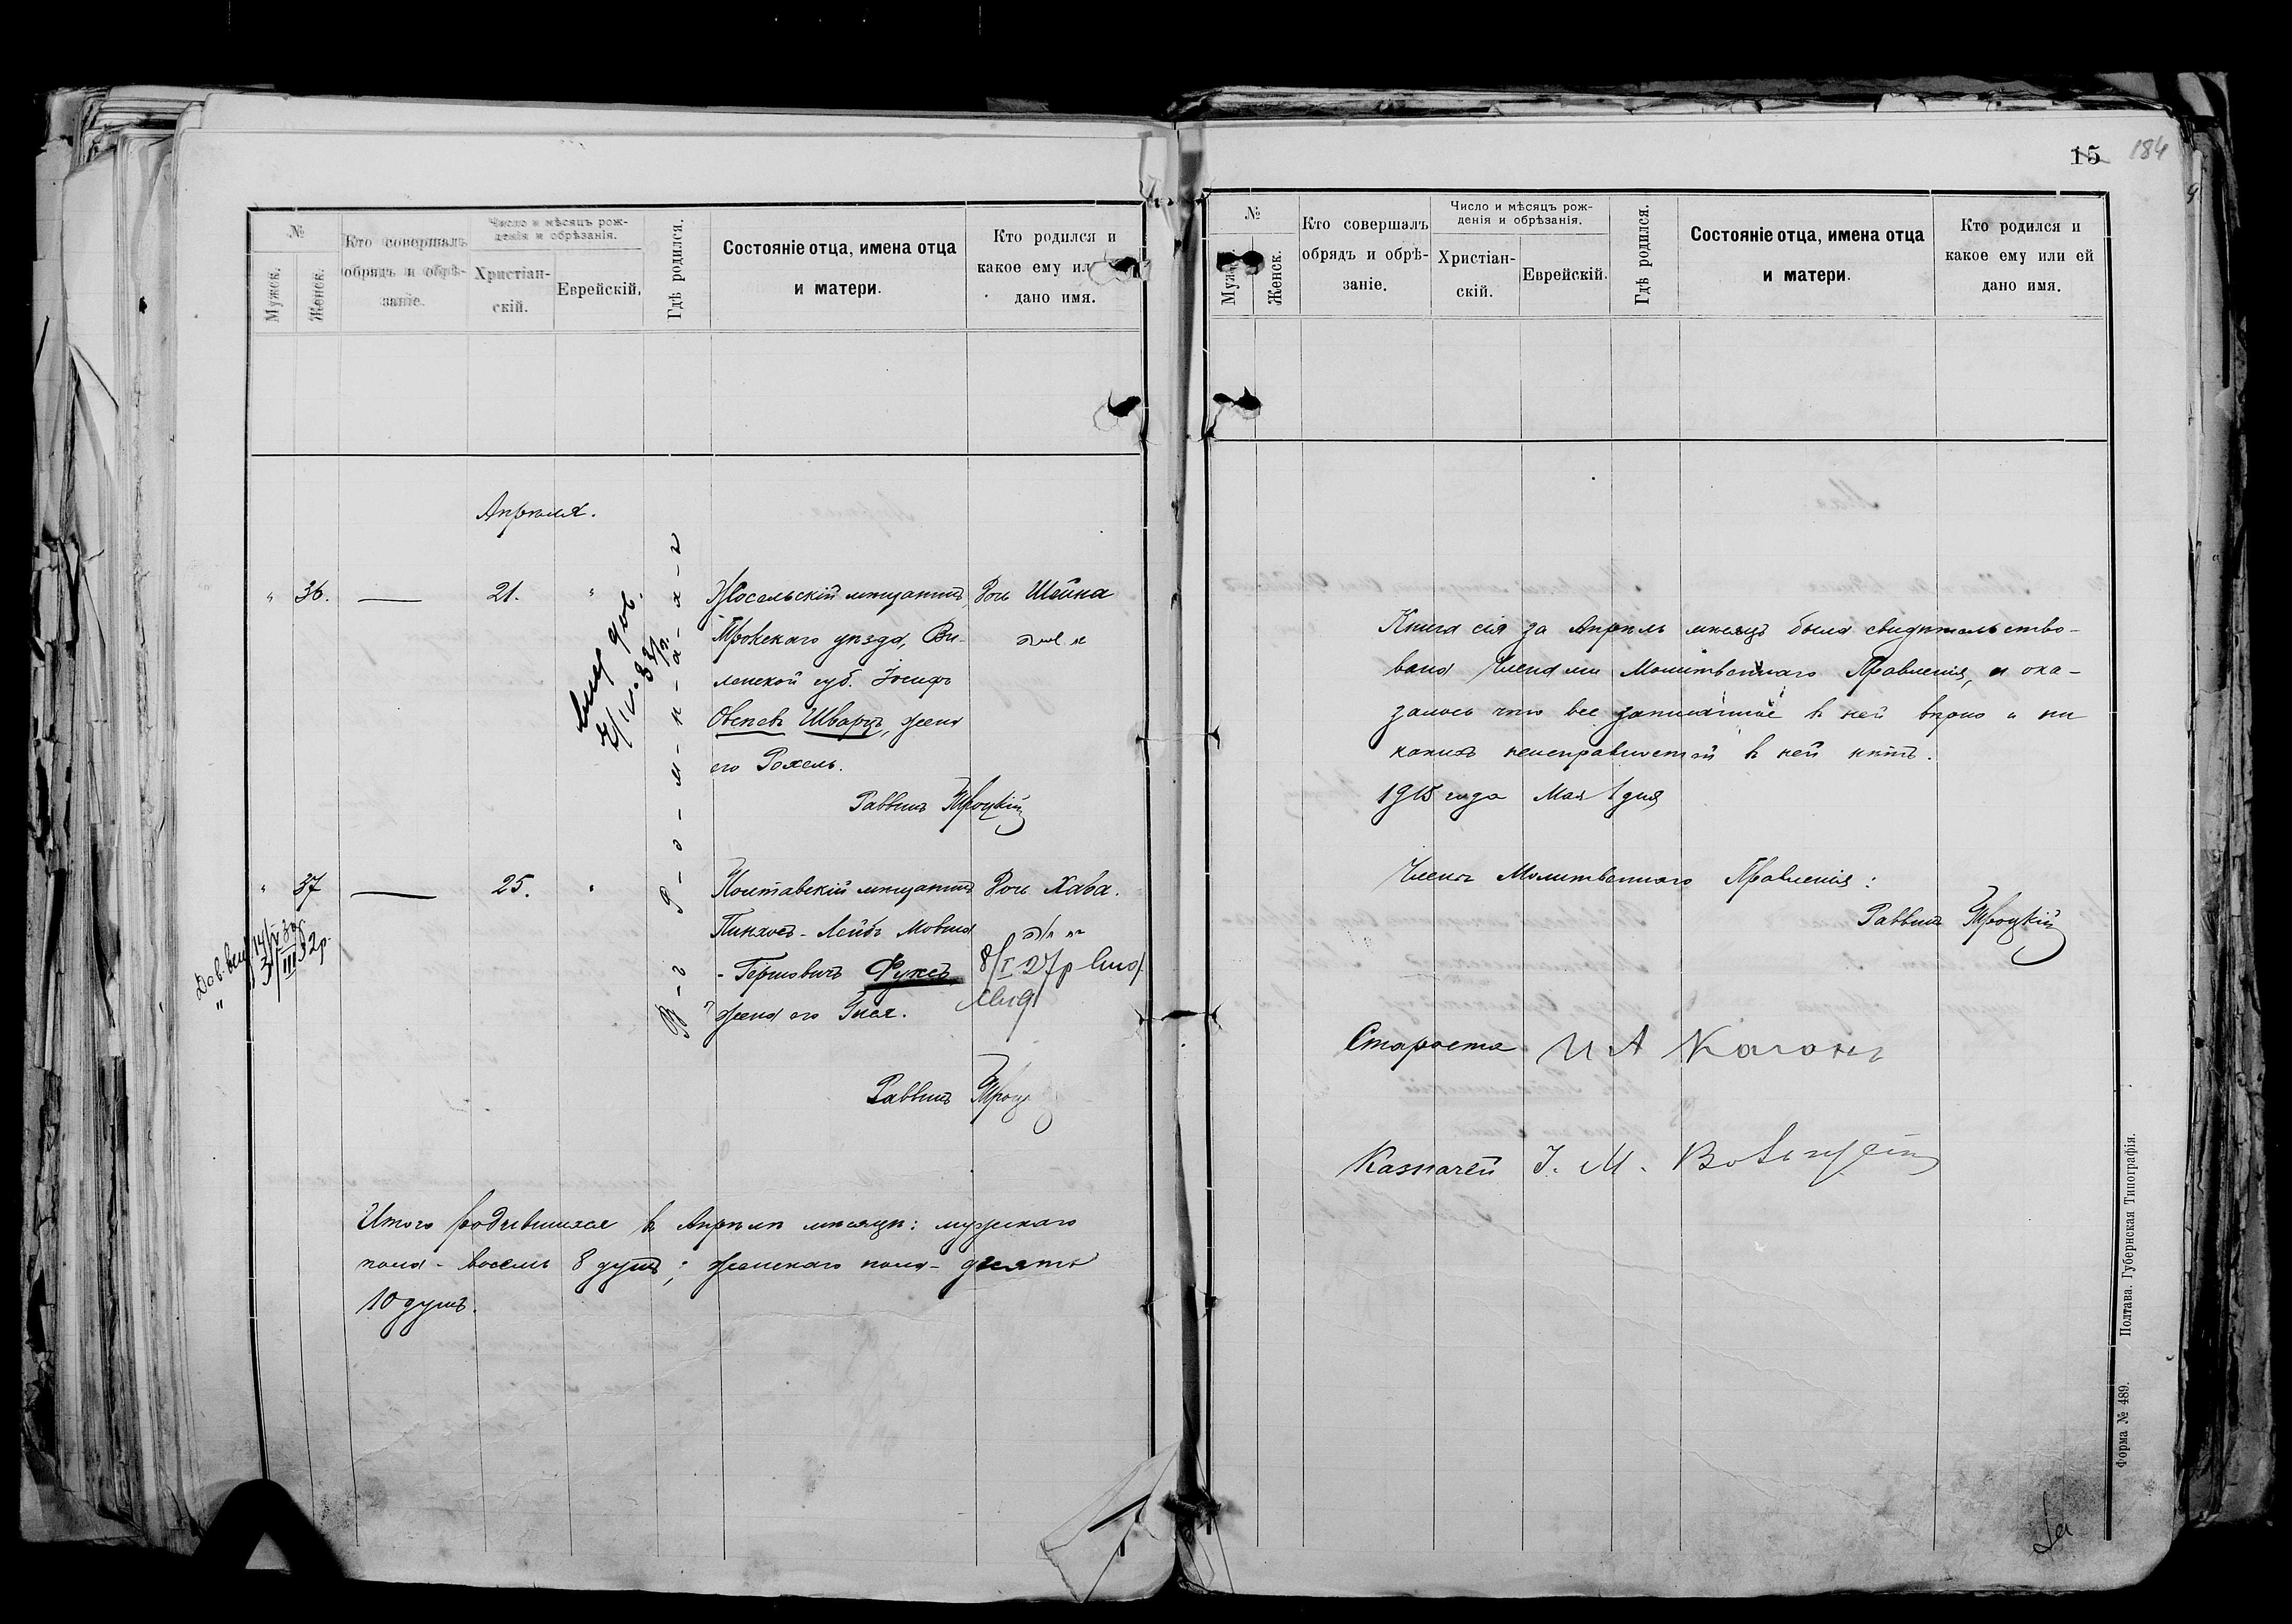 №
Мужск.
Женск.
Кто совершалъ
обрядъ и обрѣ-
заніе.
Число и мѣсяцъ рож-
денія и обрѣзанія.
Христіан-
скій.
Еврейскій.
Гдѣ родился.
Состояніе отца, имена отца
и матери.
Кто родился и
какое ему ил
дано имя.
Апрѣля.
" 36. — 21. "
мѣщанинъ
Трокскаго уѣзда, Ви-
ленской губ. Іосифъ
Овсеевъ Шварцъ, жена
его Рохель.
Дочь Шейна
שיינא
Раввинъ Троцкій
" 37 — 25. "
Полтавскій мѣщанинъ
Пинхосъ-Лейбъ Мовша
-Гершовичъ Фуксъ
жена его Гися.
Дочь Хава.
חוה
8/I 27р
Раввинъ Троц
Итого родившихся въ Апрѣлѣ мѣсяцѣ: мужскаго
пола - восемь 8 душъ; женскаго пола - десять
10 душъ.
15 184
№
Муж
Женск.
Кто совершалъ
обрядъ и обрѣ-
заніе.
Число и мѣсяцъ рож-
денія и обрѣзанія.
Христіан-
скій.
Еврейскій.
Гдѣ родился.
Состояніе отца, имена отца
и матери.
Кто родился и
какое ему или ей
дано имя.
Книга сія за Апрѣль мѣсяцъ была свидѣтельство-
вана Членами Молитвеннаго Правленія, и ока-
залось что все записанное въ ней вѣрно и ни
какихъ неисправностей въ ней нѣтъ.
1915 года Мая 1 дня
Члены Молитвеннаго Правленія:
Раввинъ Троцкій
Староста И А Коганъ
Казначей I. М.
Форма № 489. Полтава. Губернская Типографія.